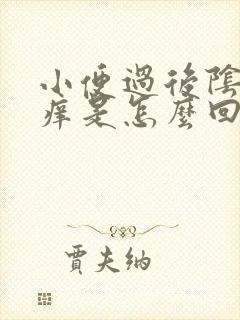 小便過後陰
痒是怎麼回
賈夫納